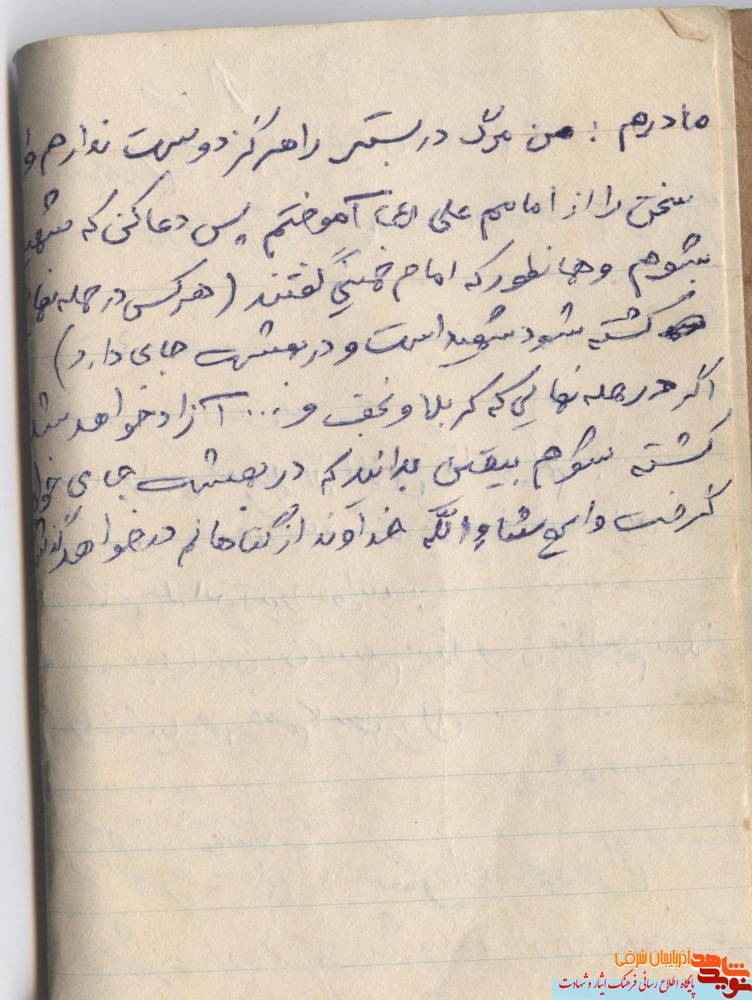 مادرم : من مرگ در بستر را هرگز دوست ندارم و
سخن را از امامم علی (ع) آموختم پس دعا کن که شهید
بشوم و همانطور که امام خمینی گفتند (هر کس در حمله نهائی
کشته شود شهید است و در بهشت جای دارد)
اگر در حمله نهائی که کربلا و نجف و ... آزاد خواهد شد
کشته شوم بیقین بدانید که در بهشت جای خواهم
گرفت و انشاءالله خداوند از گناهانم در خواهد گذشت
نوید شاهد آذربایجان شرقی
پایگاه اطلاع رسانی فرهنگ ایثار و شهادت